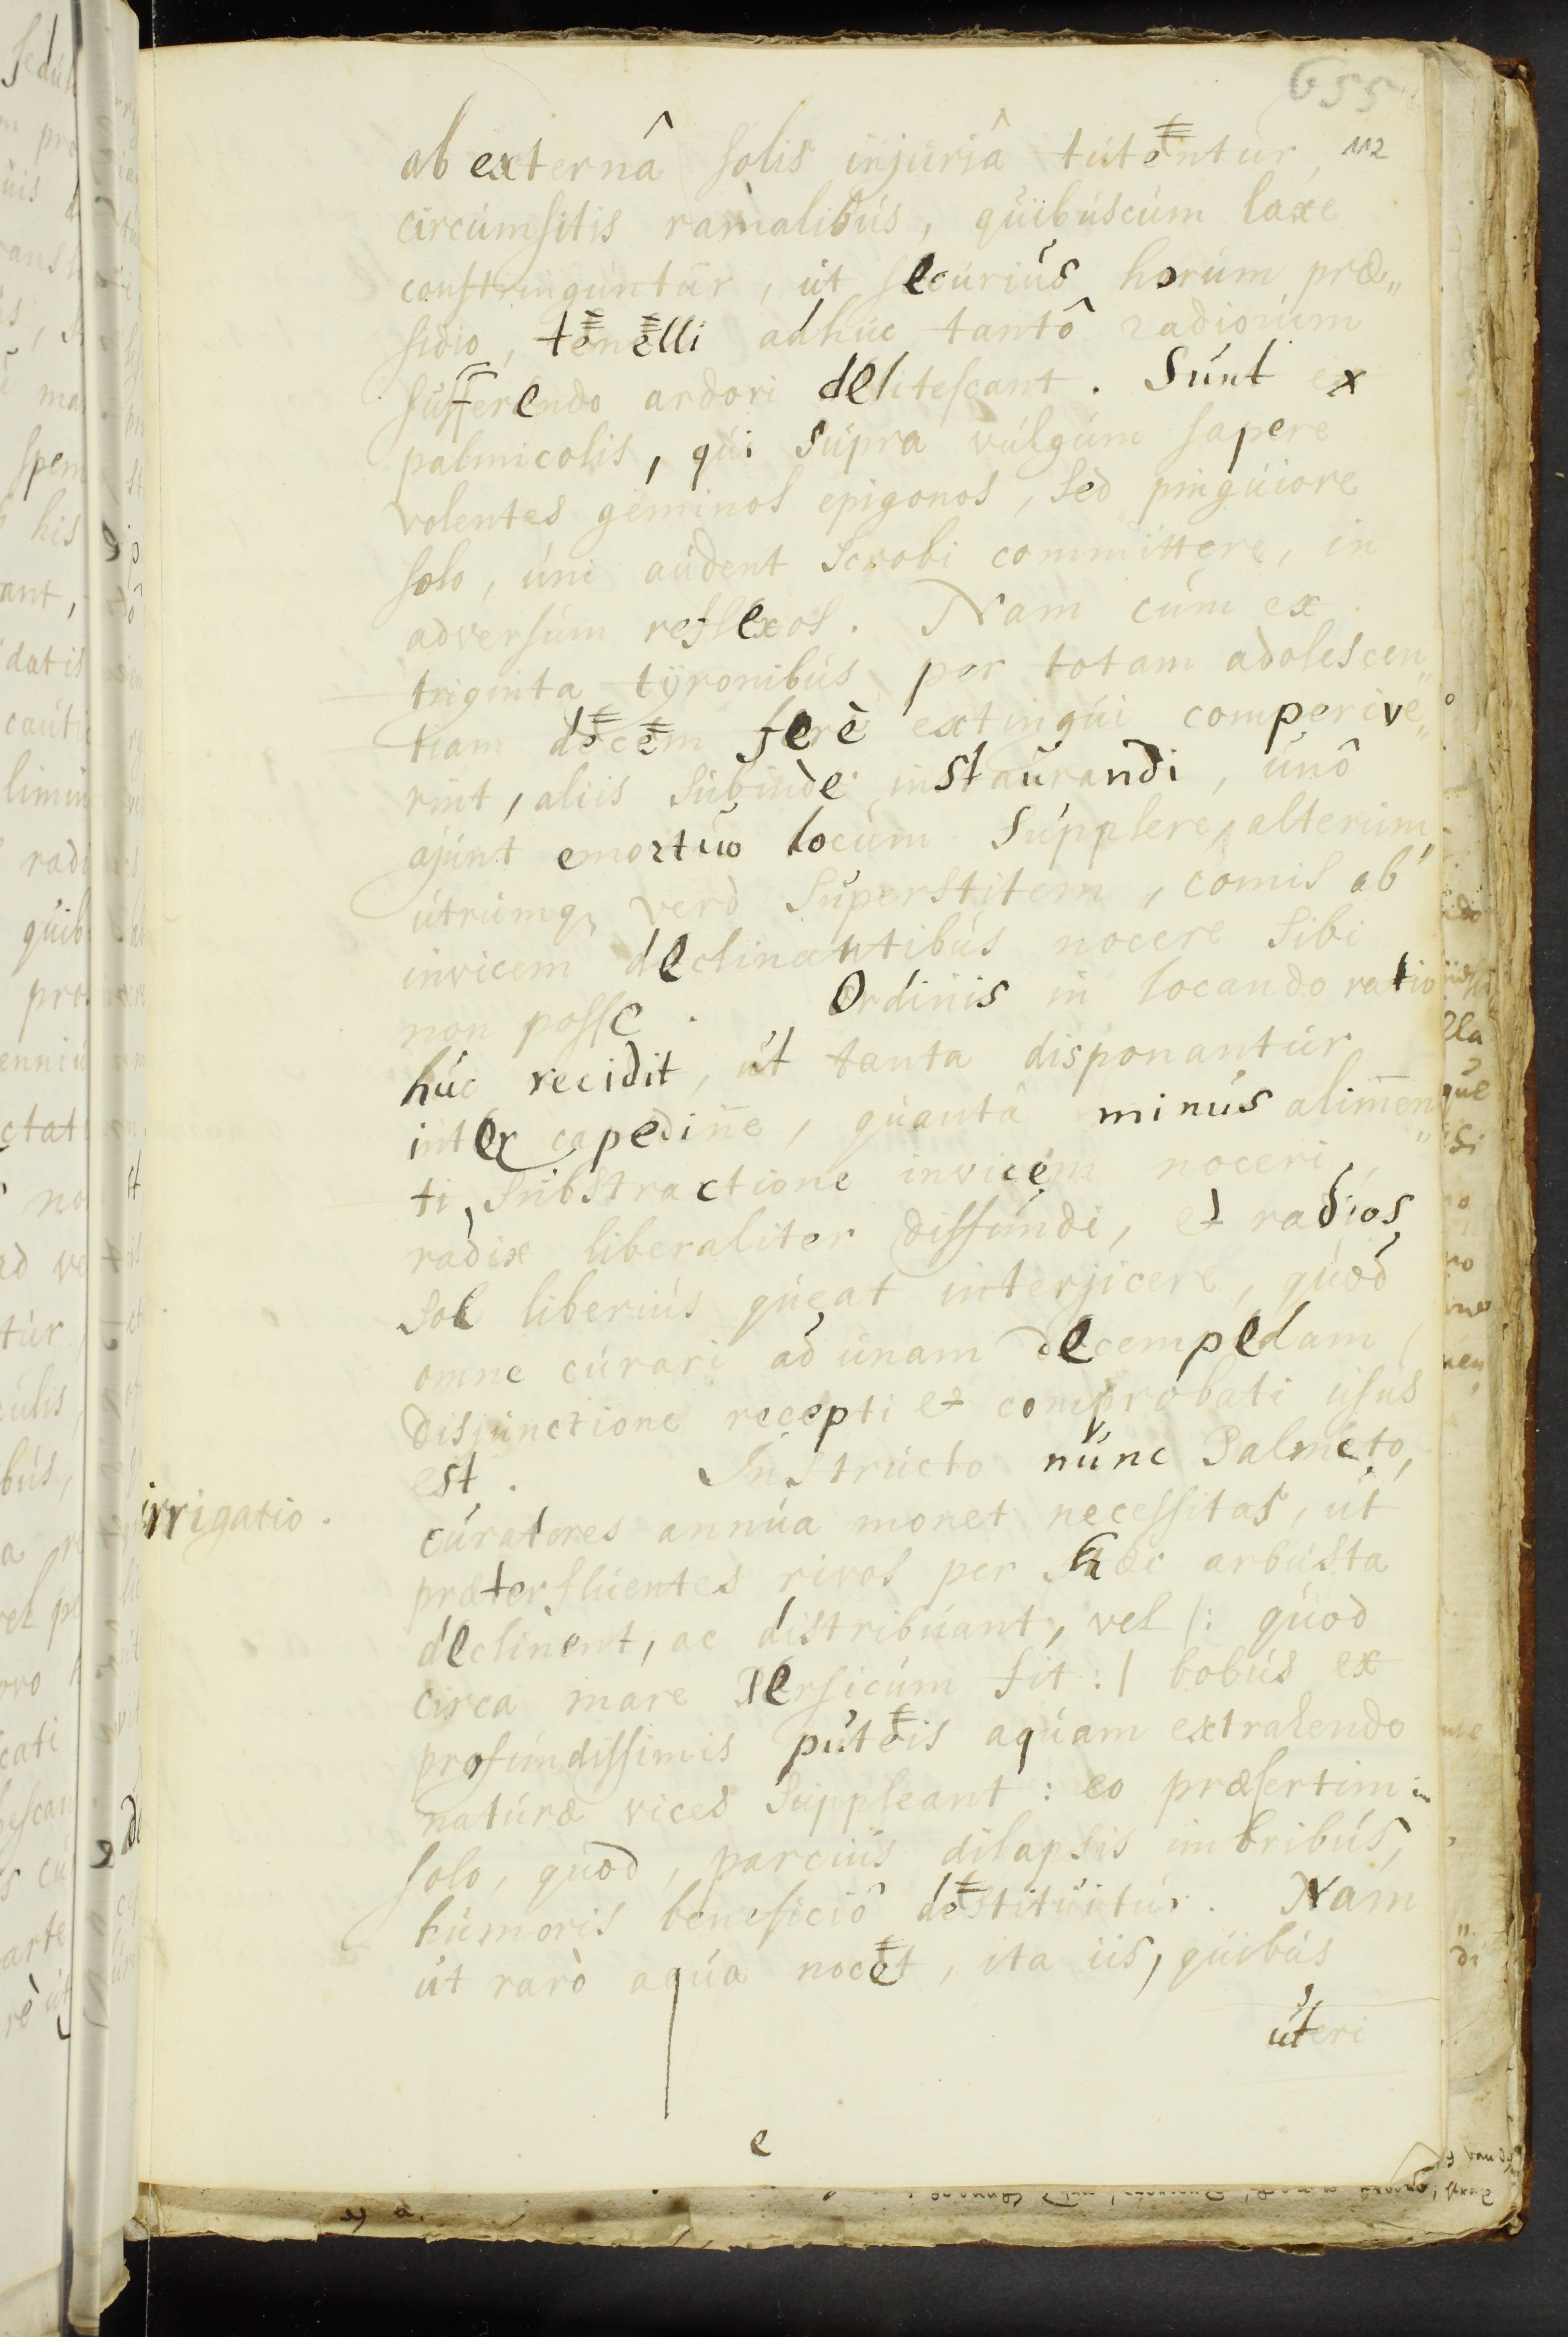 655
112
ab externâ solis injuriâ tutentur,
circumsitis ramalibus, quibuscum laxe
constringuntur, ut securius horum præ„
sidio, tenelli adhuc tantô radiorum
sufferendo ardori delitescant. Sunt ex
palmicolis, qui supra vulgum sapere
volentes geminos epigonos, sed pinguiore
solo, uni audent scrobi committere, in
adversum reflexos. Nam cum ex
triginta tyronibus per totam adolescen„
tiam decem ferè extingui comperive„
rint, aliis subinde instaurandi, unô
ajunt emortuo locum supplere alterum,
utrumq₃ verò superstitem, comis ab
invicem declinantibus nocere sibi
non posse. Ordinis in locando ratio
huc recidit, ut tanta disponantur
inter capedine, quantâ minus alimen„
ti substractione invicem noceri,
radix liberaliter diffundi, et radios
sol liberius queat interjicere, quod
omne curari ad unam decempedam
disjunctione recepti et comprobati usus
est. Instructo nunc Palmeto,
irrigatio.
curatores annua monet necessitas, ut
præterfluentes rivos per hæc arbusta
declinent, ac distribuant, vel |: quod
circa mare Persicum fit :| bobus ex
profundissimis puteis aquam extrahendo
naturæ vices suppleant: eo præsertim in
solo, quod, parcius dilapsis imbribus,
humoris beneficiô destituitur. Nam
ut rarò aqua nocet, ita iis, quibus
uteri
e